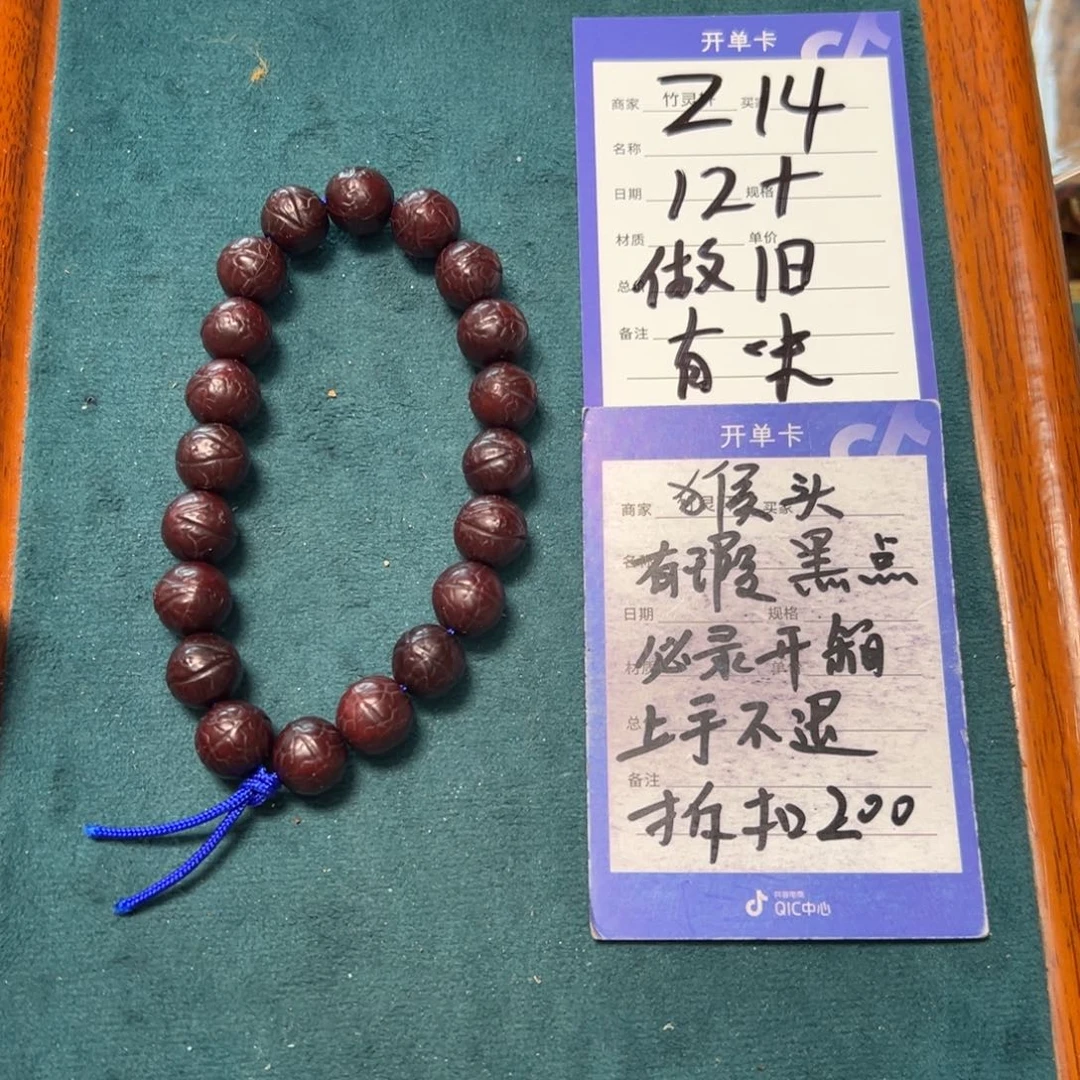 开单卡
商家 竹灵轩 买家
Z14
名称
日期 规格
12+
材质 单价
做旧
备注
有味
开单卡
猴头
商家 买家
有瑕黑点
日期 规格
必录开箱
上手不退
备注
拆扣200
抖音电商
QIC中心